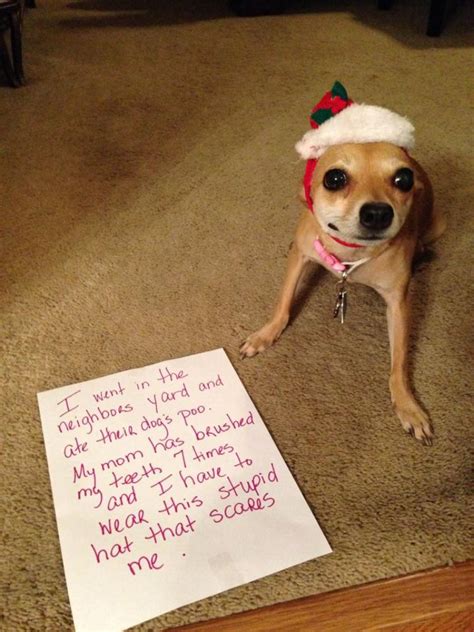 I went in the
neighbors yard and
ate their dog's poo.
My mom has brushed
my teeth 7 times
and I have to
wear this stupid
hat that scares
me.